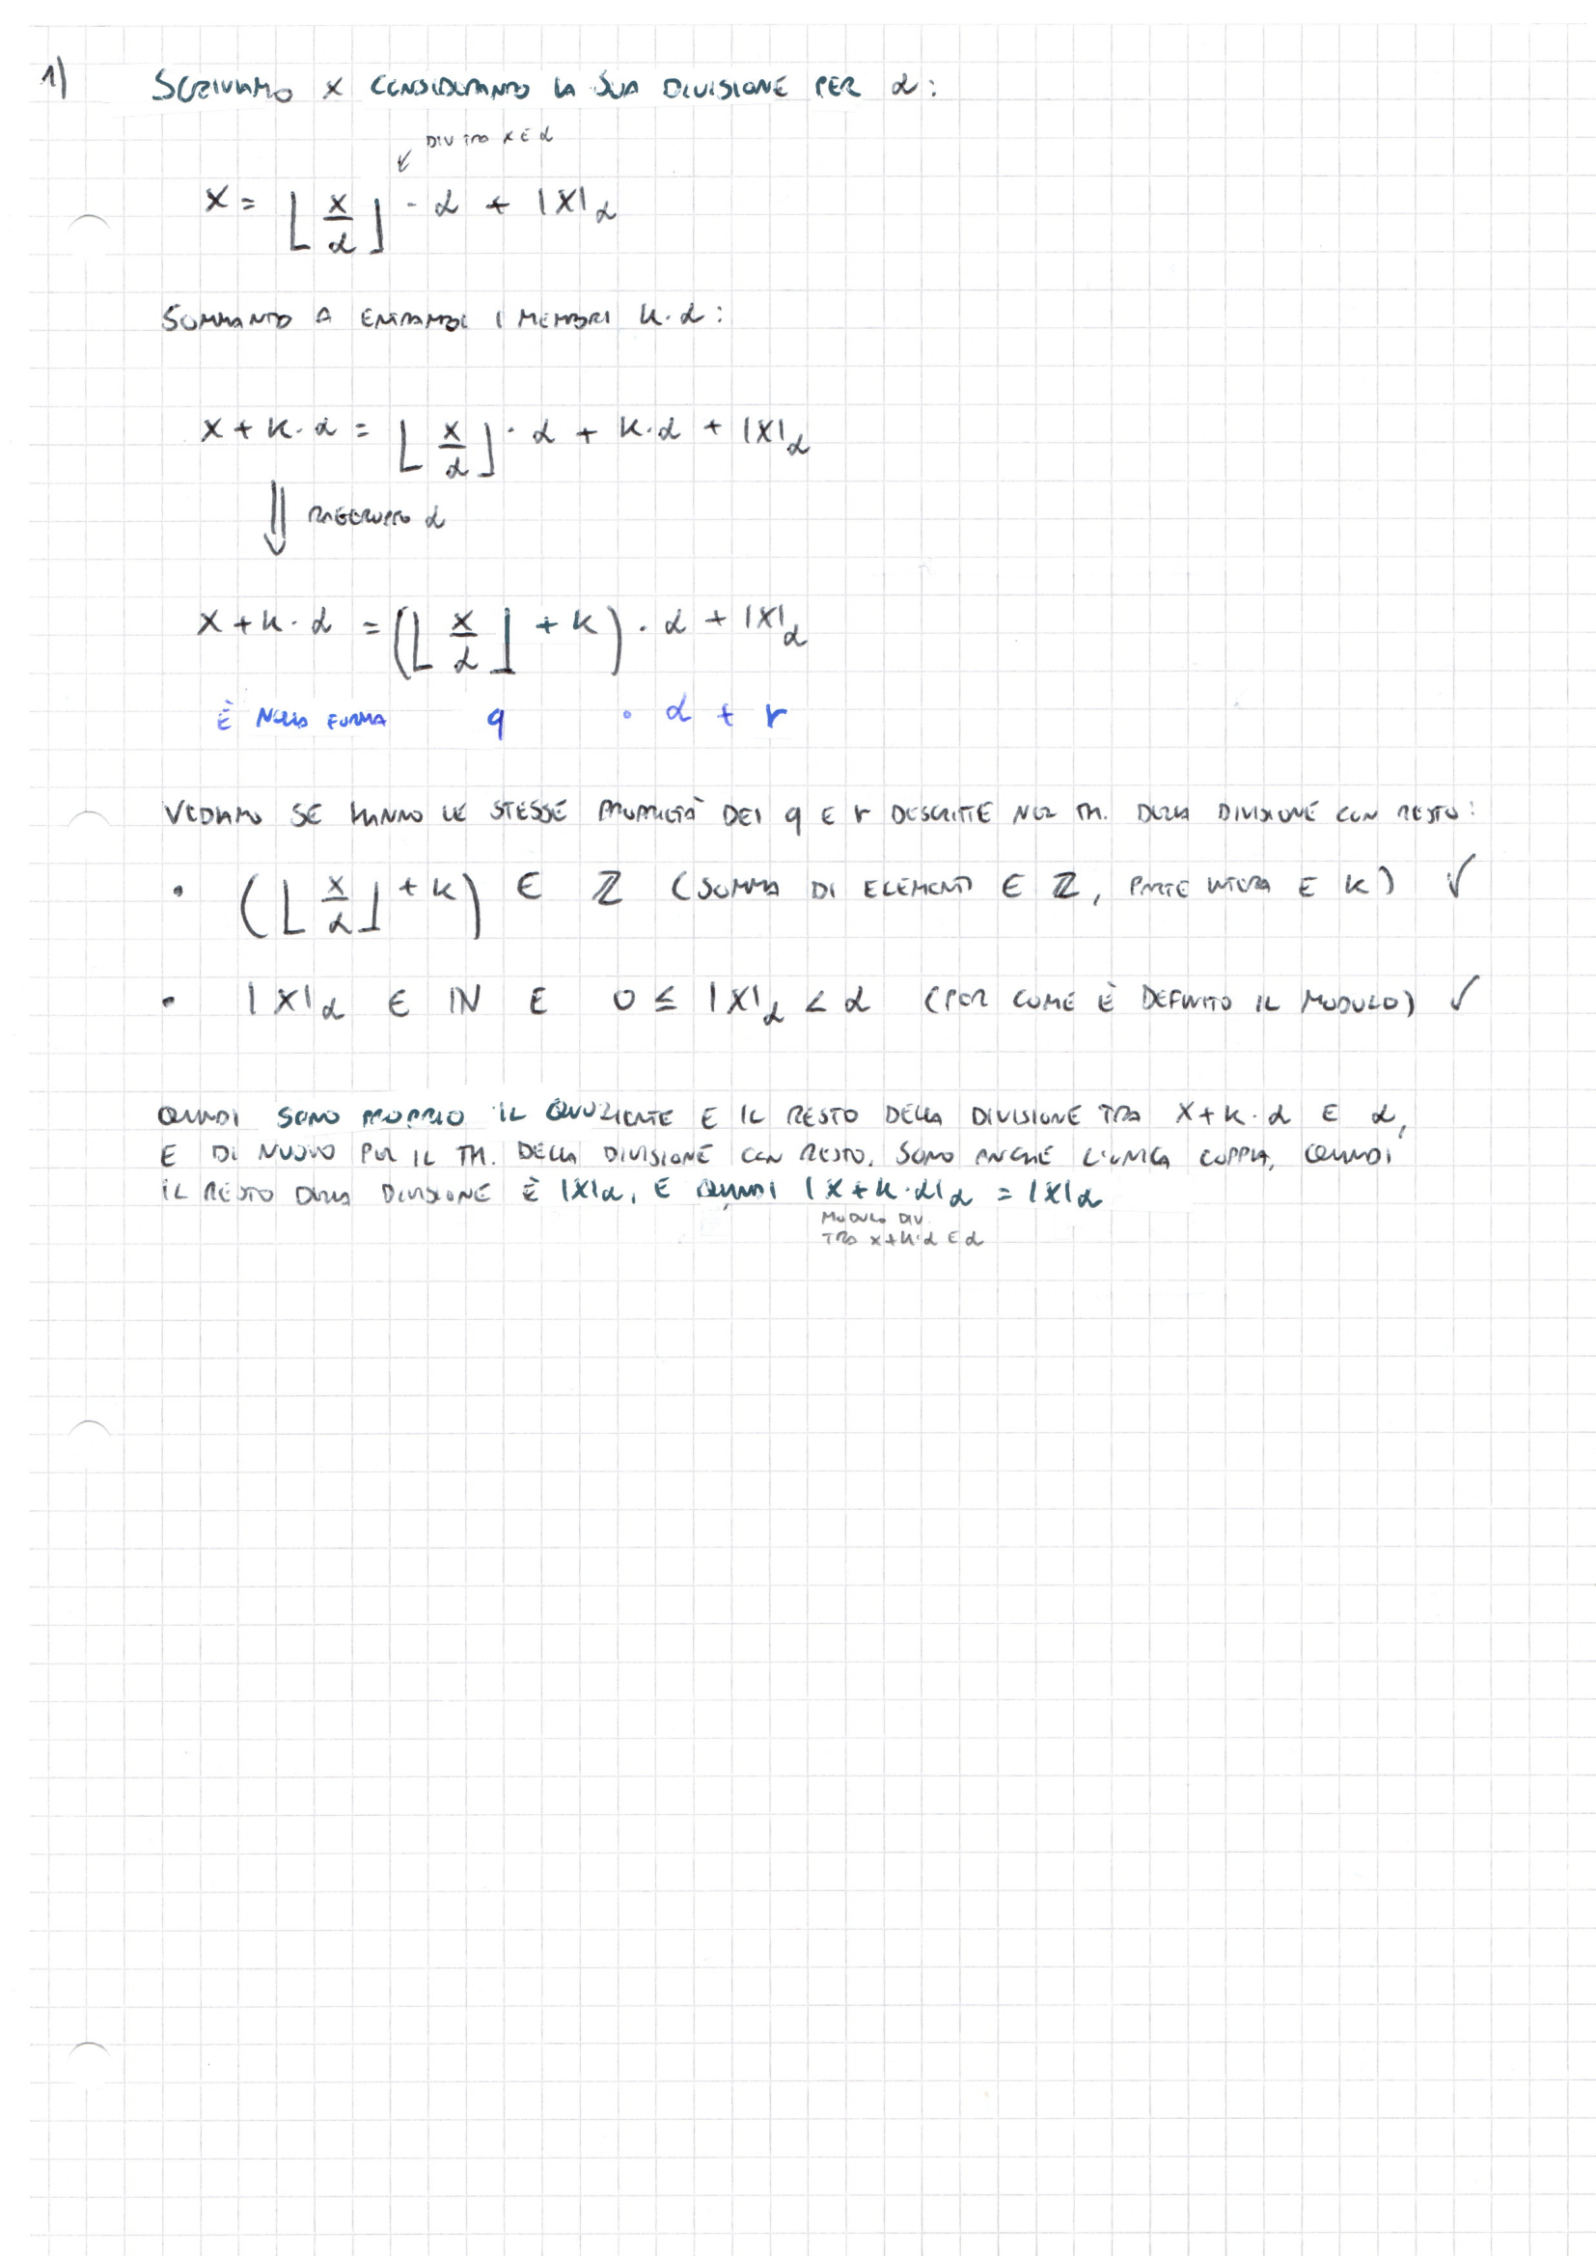 1) SCRIVIAMO X CONSIDERANDO LA SUA DIVISIONE PER α:
DIV TRA X E α
X = ⌊X/α⌋ · α + |X|α
SOMMANDO A ENTRAMBI I MEMBRI K·α:
X + K·α = ⌊X/α⌋ · α + K·α + |X|α
⇓ RAGGRUPPO α
X + K·α = (⌊X/α⌋ + K) · α + |X|α
È NELLA FORMA q · α + r
VEDIAMO SE HANNO LE STESSE PROPRIETÀ DEI q E r DESCRITTE NEL TH. DELLA DIVISIONE CON RESTO:
• (⌊X/α⌋ + K) ∈ ℤ (SOMMA DI ELEMENTI ∈ ℤ, PARTE INTERA E K) ✓
• |X|α ∈ ℕ E 0 ≤ |X|α < α (PER COME È DEFINITO IL MODULO) ✓
QUINDI SONO PROPRIO IL QUOZIENTE E IL RESTO DELLA DIVISIONE TRA X+K·α E α,
E DI NUOVO PER IL TH. DELLA DIVISIONE CON RESTO, SONO ANCHE L'UNICA COPPIA, QUINDI
IL RESTO DELLA DIVISIONE È |X|α, E QUINDI |X+K·α|α = |X|α
MODULO DIV.
TRA X+K·α E α